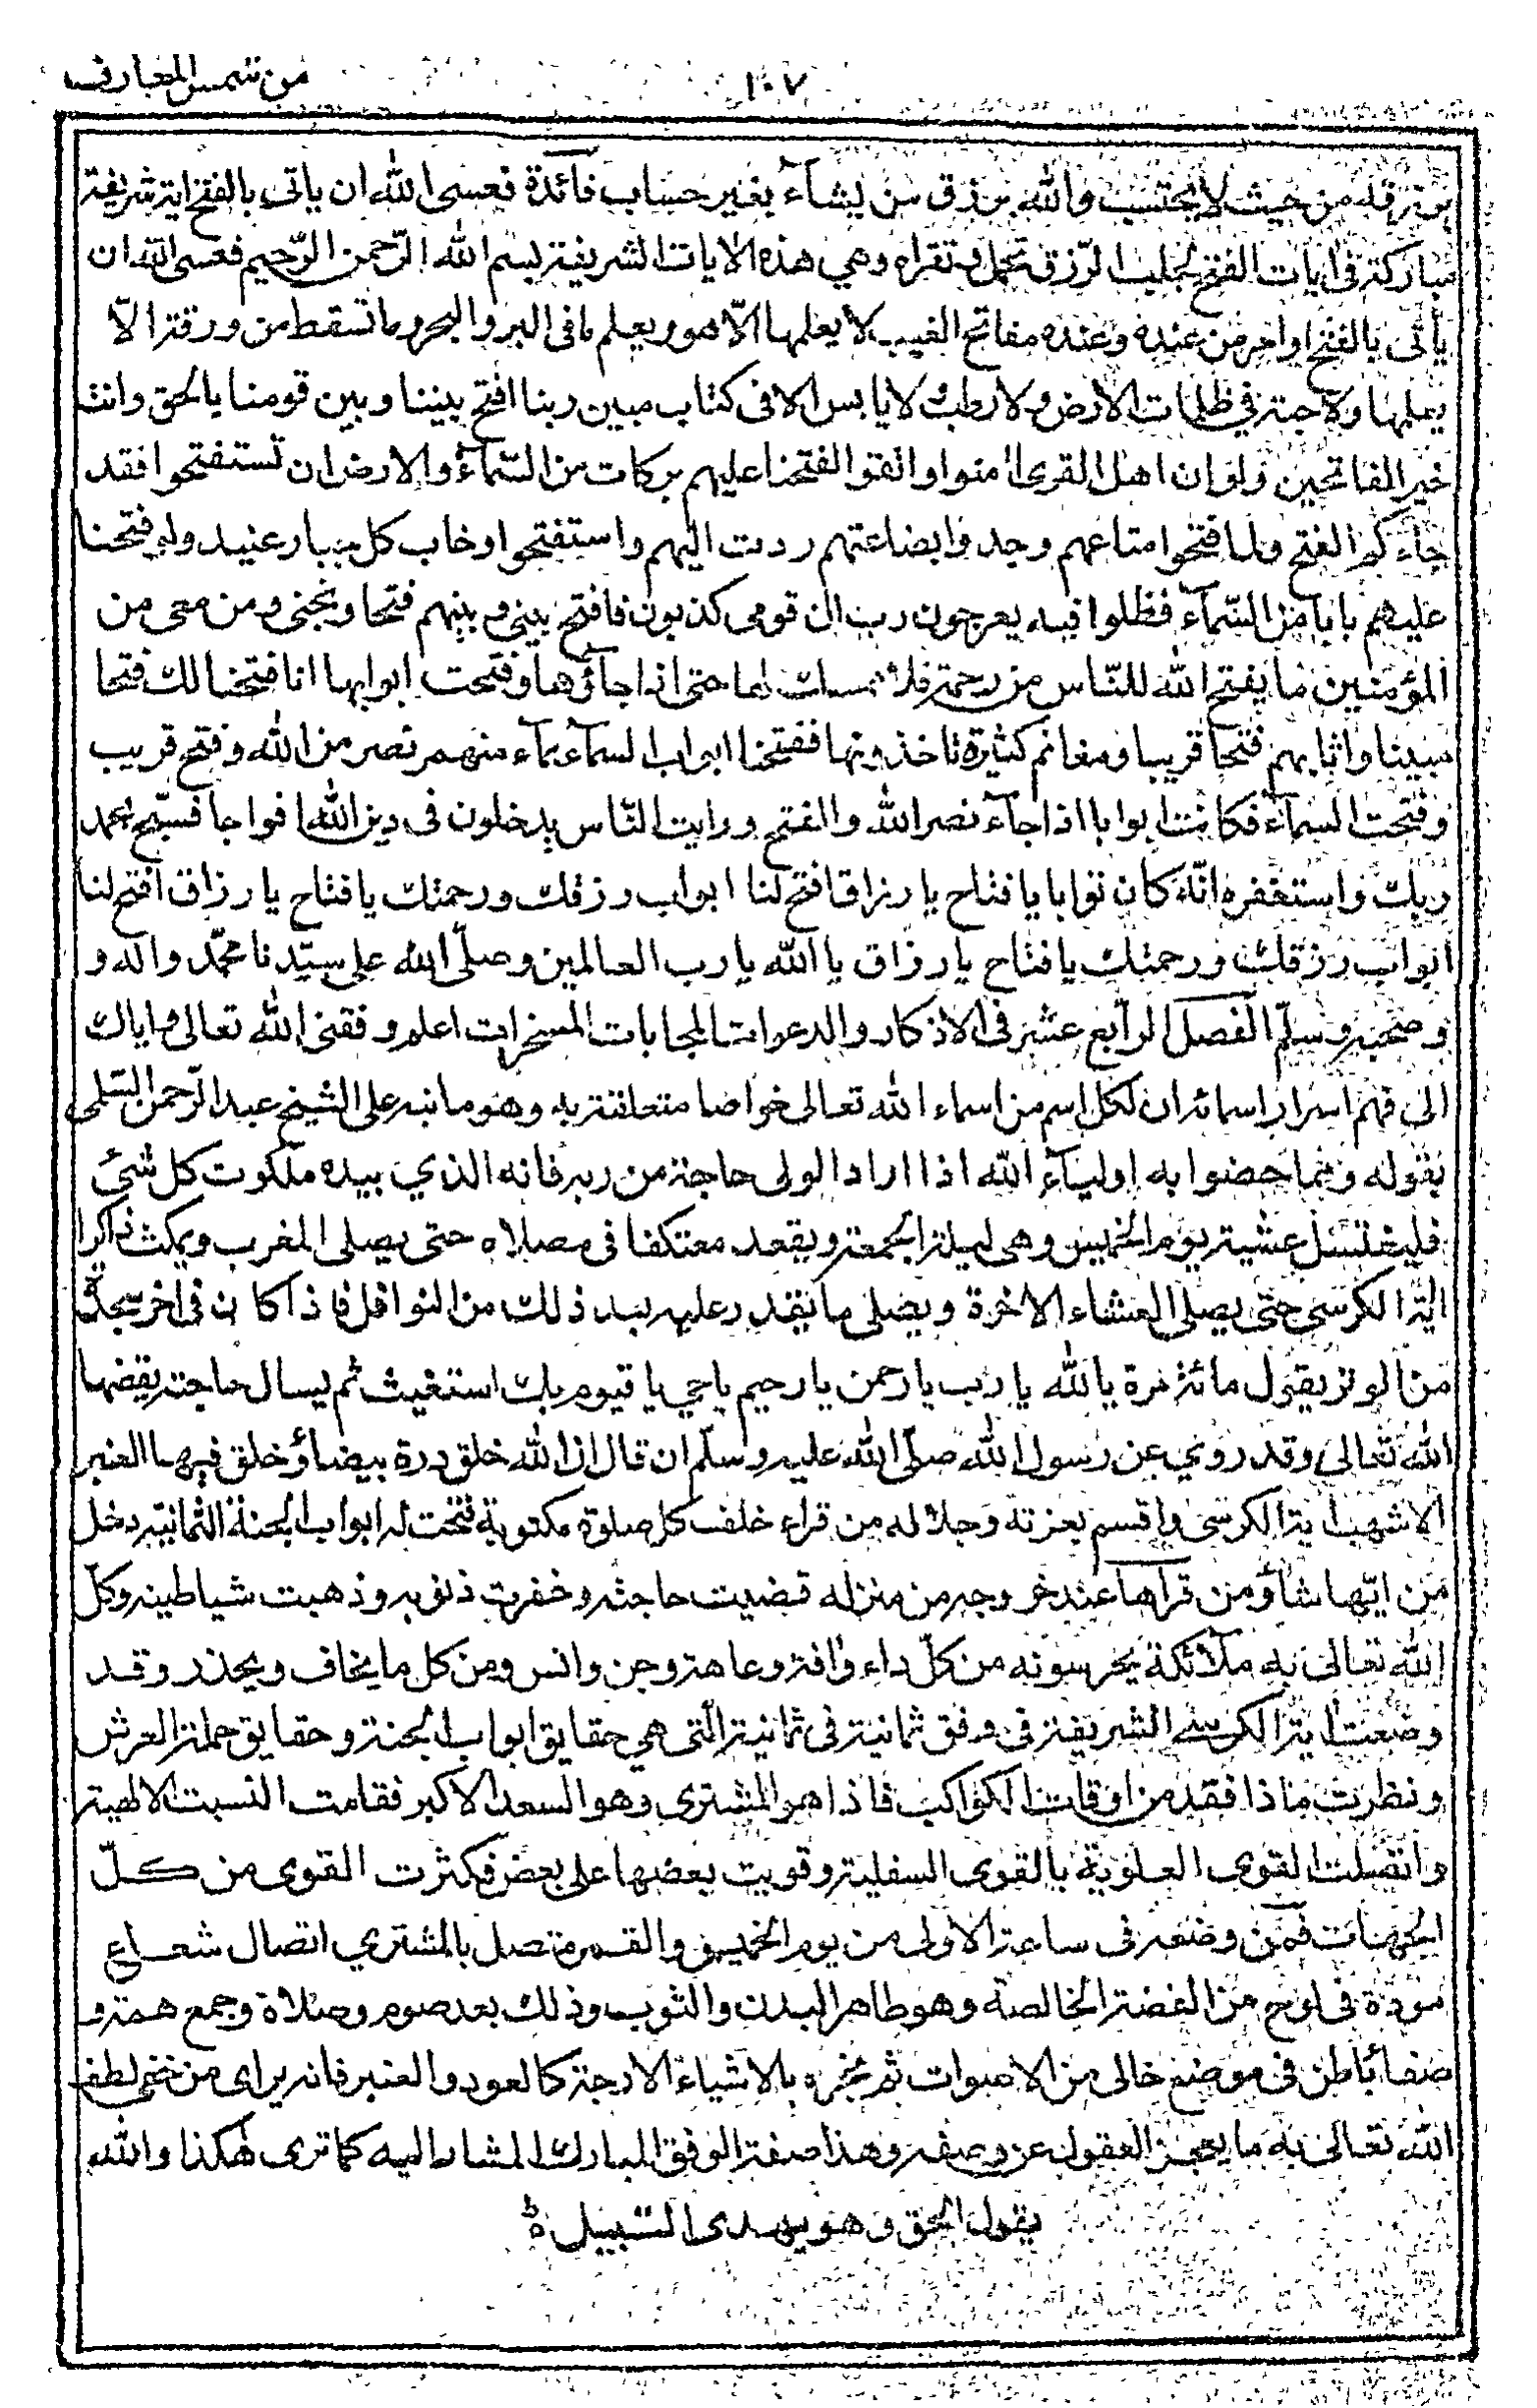 ١٠٧
من شمس المعارف
يرزقه من حيث لا يحتسب والله يرزق من يشآء بغير حساب فآئدة فعسى الله ان ياتى بالفتح اية شريفة
مباركة فى ايات الفتح لجلب الرّزق تحمل وتقراه وهي هذه الايات الشريفة بسم الله الرّحمن الرّحيم فعسى الله ان
يأتى بالفتح او امر من عنده وعنده مفاتح الغيب لا يعلمها الّا هو ويعلم ما فى البر والبحر وما تسقط من ورقة الّا
يعلمها ولا حبة في ظلمات الارض ولا رطب ولا يابس الا فى كتاب مبين ربنا افتح بيننا وبين قومنا بالحق وانت
خير الفاتحين ولو ان اهل القرى امنوا واتقوا لفتحنا عليهم بركات من السّمآء والارض ان تستفتحوا فقد
جاءكم الفتح ولما فتحوا متاعهم وجدوا بضاعتهم ردت اليهم واستفتحوا وخاب كل جبار عنيد ولو فتحنا
عليهم بابا من السّمآء فظلوا فيه يعرجون رب ان قومى كذبون فافتح بيني وبينهم فتحا ونجنى ومن معى من
المؤمنين ما يفتح الله للنّاس من رحمة فلا ممسك لها حتى اذا جاؤها وفتحت ابوابها انا فتحنا لك فتحا
مبينا واثابهم فتحا قريبا ومغانم كثيرة تاخذونها ففتحنا ابواب السمآء بمآء منهمر نصر من الله وفتح قريب
وفتحت السمآء فكانت ابوابا اذا جآء نصر الله والفتح ورايت النّاس يدخلون فى دين الله افواجا فسبّح بحمد
ربك واستغفره انّه كان توابا يا فتاح يا رزاق افتح لنا ابواب رزقك ورحمتك يا فتاح يا رزاق افتح لنا
ابواب رزقك ورحمتك يا فتاح يا رزاق يا الله يا رب العالمين وصلّى الله على سيّدنا محمّد واله و
وصحبه وسلّم الفصل الرابع عشر فى الاذكار والدعوات المجابات المسخرات اعلم وفقنى الله تعالى واياك
الى فهم اسرار اسمائه ان لكل اسم من اسماء الله تعالى خواصا متعلقة به وهو ما نبه على الشيخ عبد الرّحمن السّلمى
بقوله ومما خصوا به اوليآء الله اذا اراد الولى حاجة من ربه فانه الذي بيده ملكوت كل شئ
فليغتسل عشية يوم الخميس وهى ليلة الجمعة ويقعد معتكفا فى مصلاه حتى يصلى المغرب ويمكث ذاكرا
اية الكرسى حتى يصلى العشاء الاخرة ويصلى ما يقدر عليه بعد ذلك من النوافل فاذا كان فى اخر سجدة
من الوتر يقول مائة مرة يا الله يا رب يا رحمن يا رحيم يا حي يا قيوم بك استغيث ثم يسال حاجته يقضها
الله تعالى وقد روي عن رسول الله صلّى الله عليه وسلّم ان قال ان الله خلق درة بيضاؤ خلق فيها العنبر
الاشهب اية الكرسى واقسم بعزته وجلاله من قراء خلف كل صلوة مكتوبة فتحت له ابواب الجنة الثمانية دخل
من ايّها شاؤ من قرأها عند خروجه من منزله قضيت حاجته وغفرت ذنوبه وذهبت شياطينه وكّل
الله تعالى به ملآئكة يحرسونه من كلّ داء وافة وعاهة وجن وانس ومن كل ما يخاف ويحذر وقد
وضعت اية الكرسى الشريفة فى وفق ثمانية فى ثمانية الّتى هي حقايق ابواب الجنة وحقايق حملة العرش
ونظرت ماذا فقد من اوقات الكواكب فاذا هو المشترى وهو السعد الاكبر فقامت النسبت الالهية
واتصلت القوى العلوية بالقوى السفلية وقويت بعضها على بعض فكثرت القوى من كلّ
الجهات فمن وضعه فى ساعة الاولى من يوم الخميس والقمر متصل بالمشتري اتصال شعاع
مودة فى لوح من الفضة الخالصة وهو طاهر البدن والثوب وذلك بعد صوم وصلاة وجمع همة و
صفا باطن فى موضع خالى من الاصوات ثم بخره بالاشياء الارجة كالعود والعنبر فانه يراى من خفى لطف
الله تعالى به ما يعجز العقول عن وصفه وهذا صفة الوفق المبارك المشار اليه كما ترى هكذا والله
يقول الحق وهو يهدى السّبيل ه